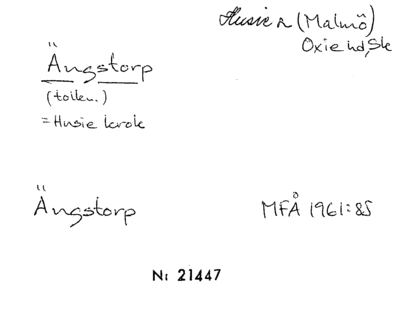 Husie sn (Malmö)
Oxie hd, Sk
Ängstorp
(tolkn.)
= Husie krok
Ängstorp
MFÅ 1961:85
N: 21447